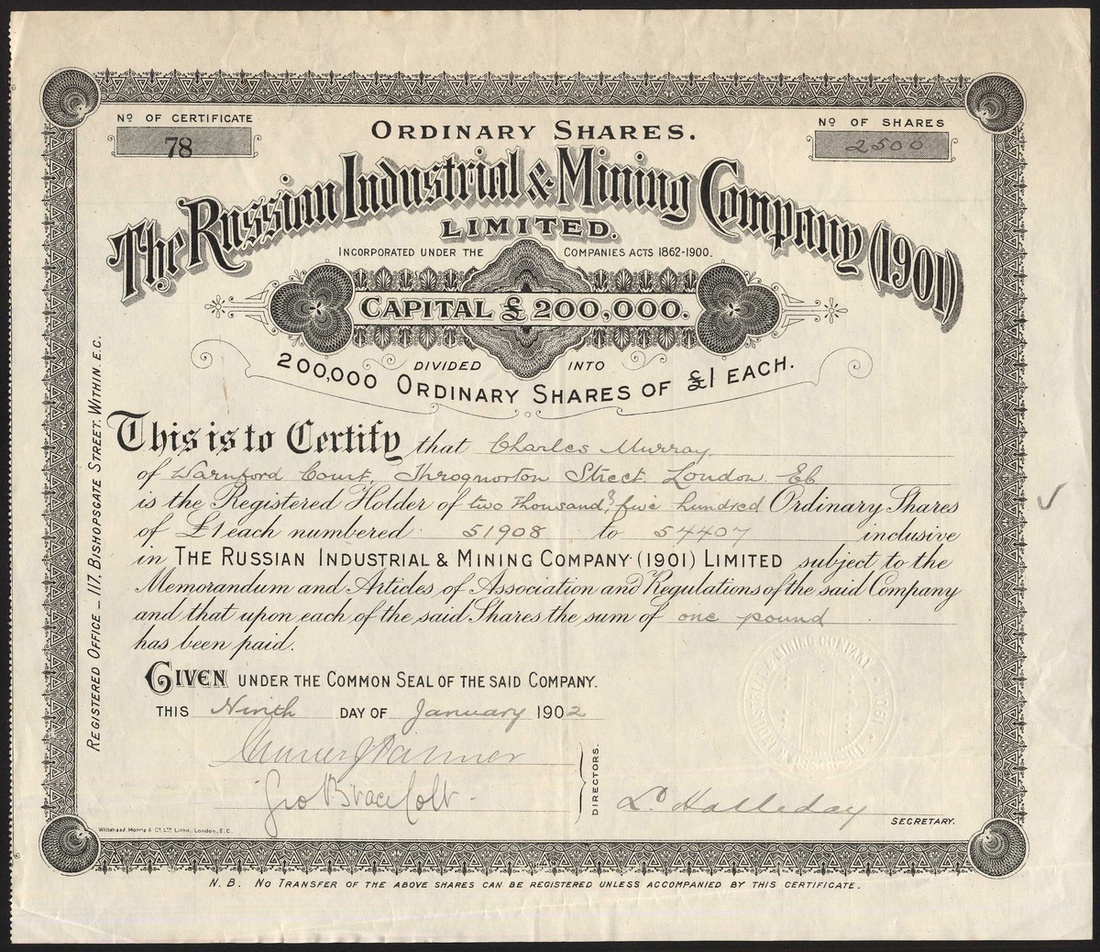 No OF CERTIFICATE
78
No OF SHARES
2500
ORDINARY SHARES.
The Russian Industrial & Mining Company (1901)
LIMITED.
INCORPORATED UNDER THE COMPANIES ACTS 1862-1900.
CAPITAL £200,000.
DIVIDED INTO
200,000 ORDINARY SHARES OF £1 EACH.
This is to Certify that Charles Murray
of Warnford Court, Throgmorton Street, London EC
is the Registered Holder of two thousand & five hundred Ordinary Shares
of £1 each numbered 51908 to 54407 inclusive
in THE RUSSIAN INDUSTRIAL & MINING COMPANY (1901) LIMITED subject to the
Memorandum and Articles of Association and Regulations of the said Company
and that upon each of the said Shares the sum of one pound
has been paid.
GIVEN UNDER THE COMMON SEAL OF THE SAID COMPANY.
THIS Ninth DAY OF January 1902
DIRECTORS.
Halleday
SECRETARY.
REGISTERED OFFICE _ 117, BISHOPSGATE STREET. WITHIN. E.C.
Whitehead, Morris & Co. Ltd. Litho., London, E.C.
N.B. NO TRANSFER OF THE ABOVE SHARES CAN BE REGISTERED UNLESS ACCOMPANIED BY THIS CERTIFICATE.